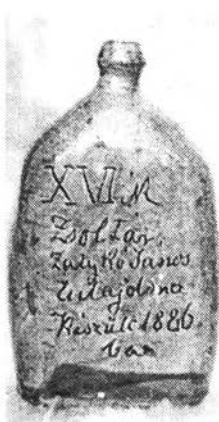 XVI.ik
Zsoltár.
Zatykó János
tulajdona
Készült 1886.
ban